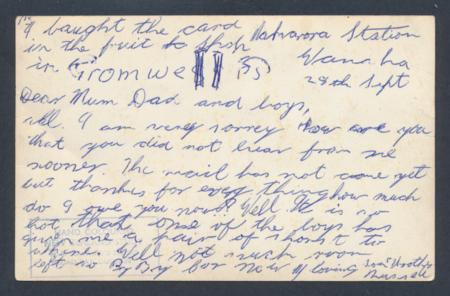 I bought the card
in the fruit & shop
in Cromwell
Station
Wanaka
28th Sept
Dear Mum Dad and boys,
How are you
all. I am very sorry
that you did not hear from me
sooner. The mail has not come yet
but thanks for every thing how much
do I owe you now? Well it is so
hot that one of the boys has
given me a pair of shorts to
Well not much room
left so By By for now loving son & brother